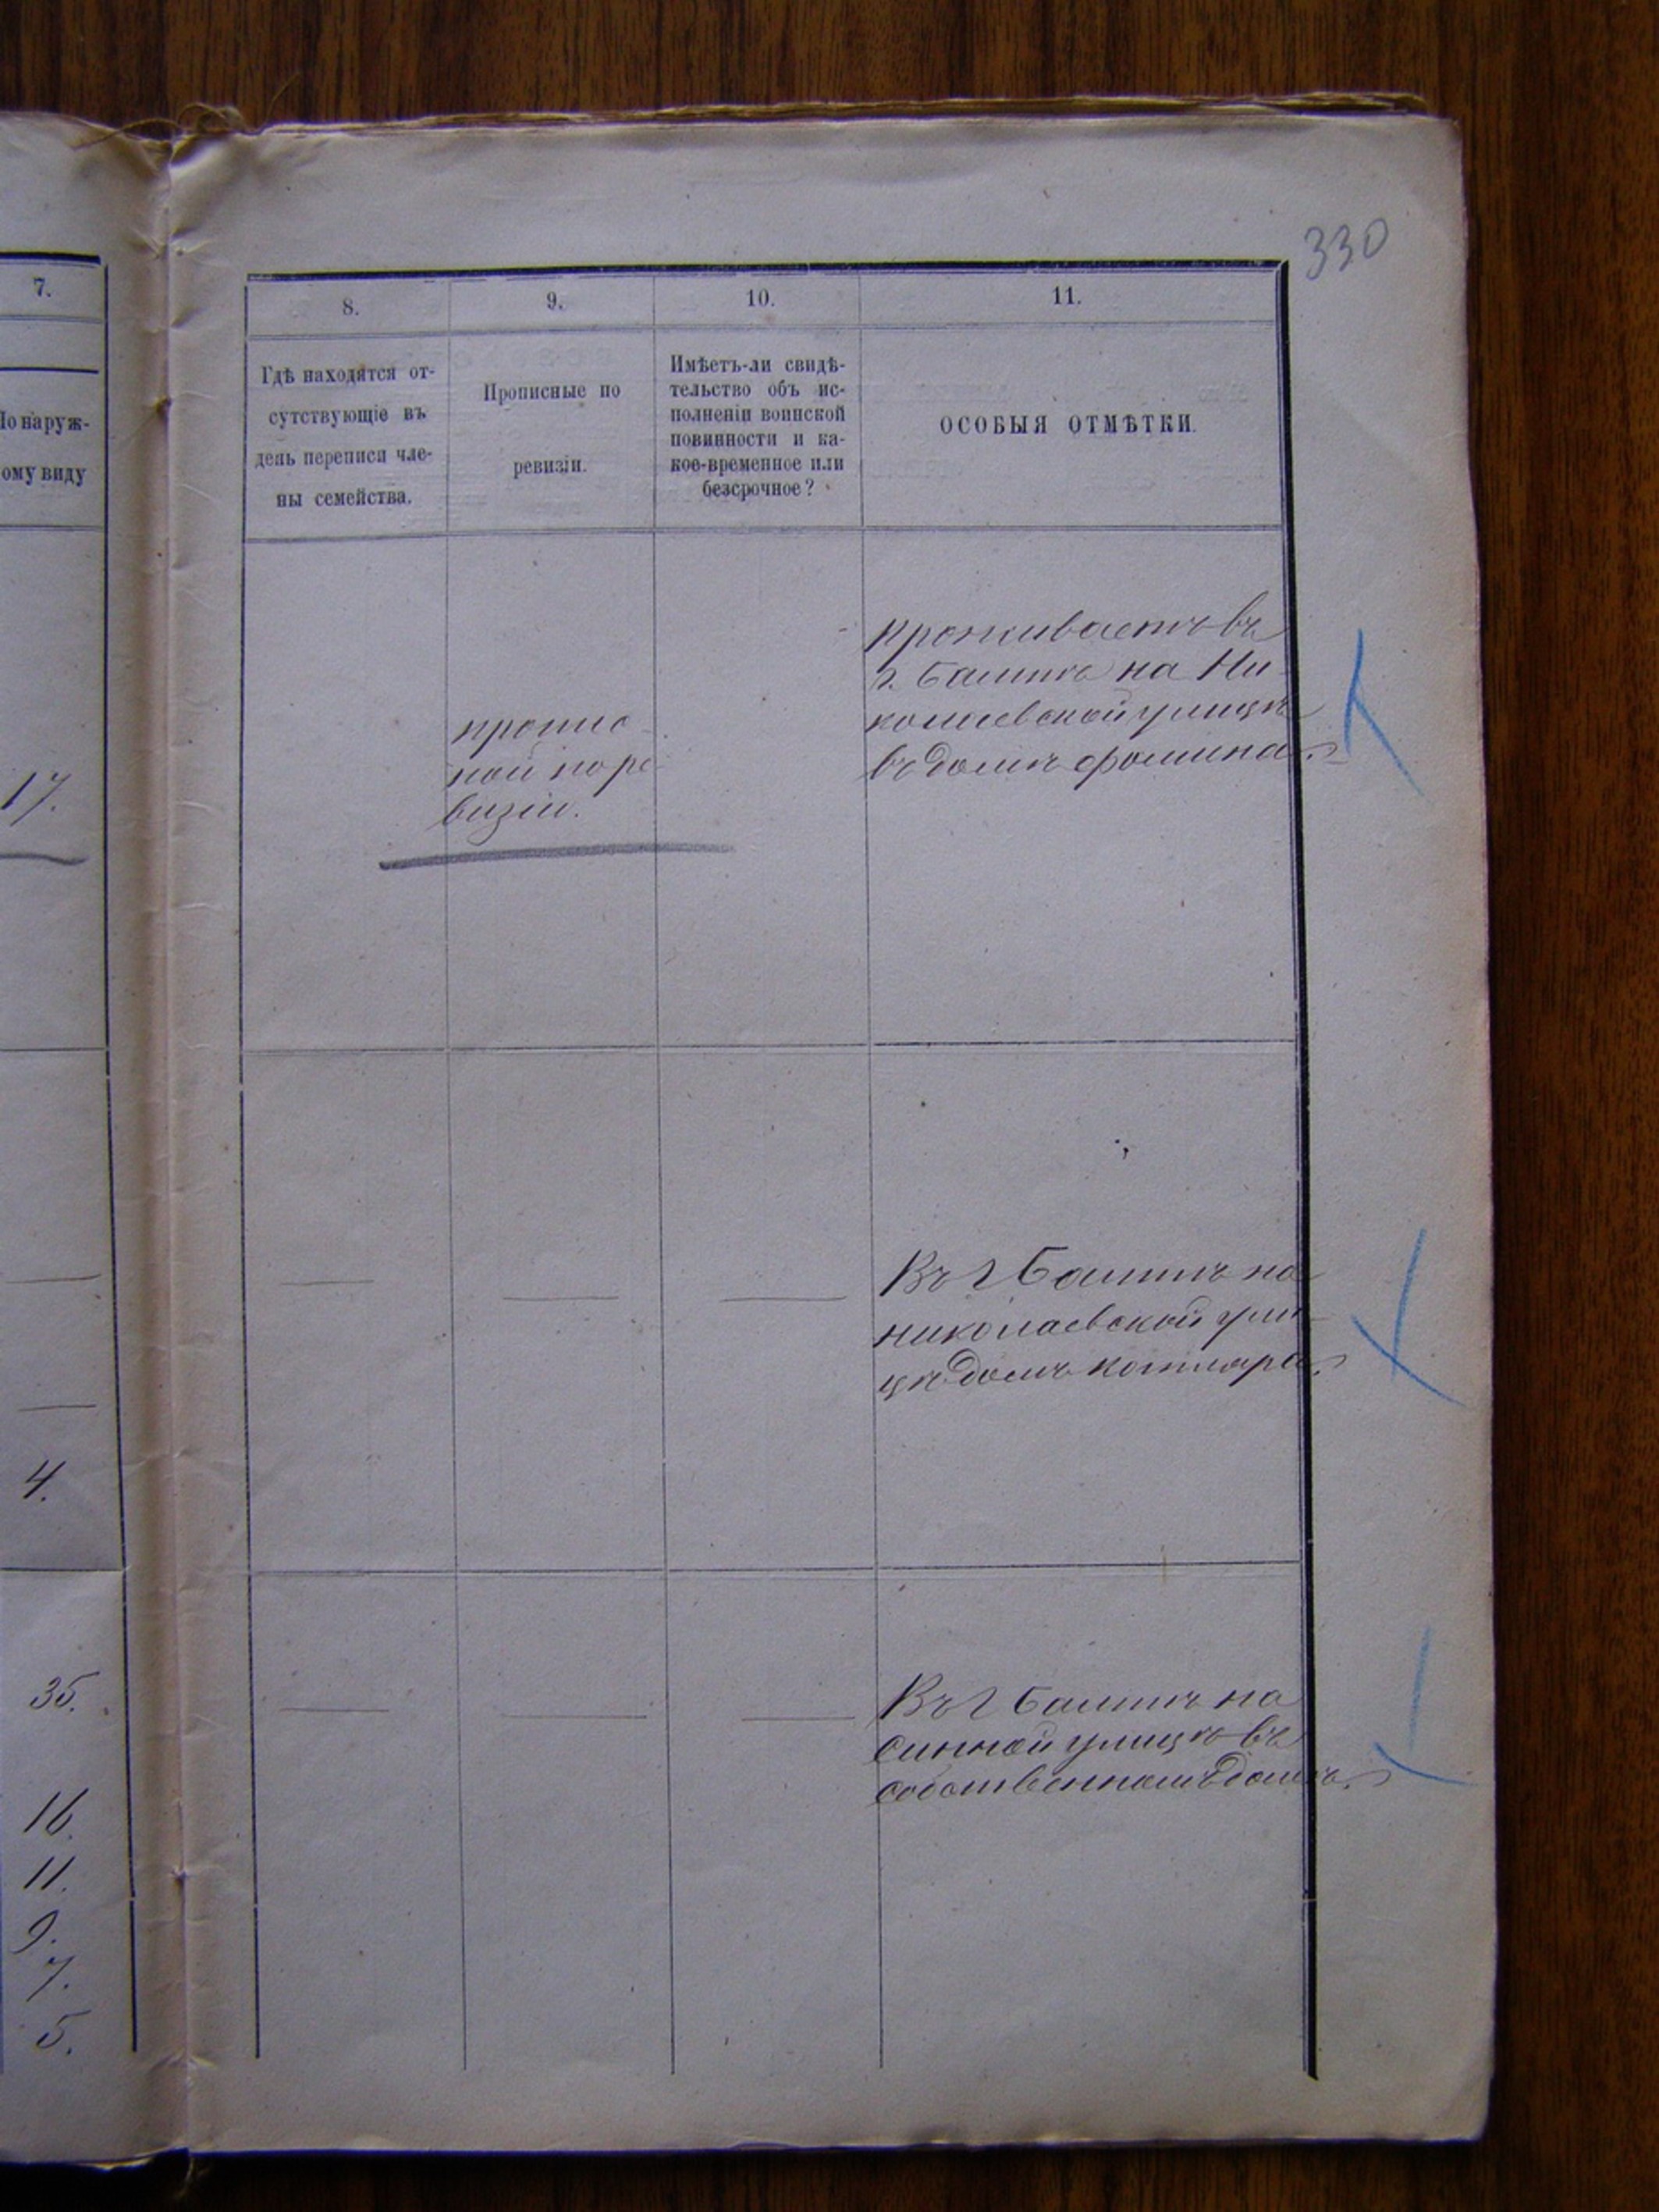 330
7.
По наруж-
ому виду
17.
4.
35.
16.
11.
9.
7.
5.
8.
Гдѣ находятся от-
сутствующіе въ
день переписи чле-
ны семейства.
9.
Прописные по
ревизіи.
10.
Имѣетъ-ли свидѣ-
тельство объ ис-
полненіи воинской
повинности и ка-
кое-временное или
безсрочное?
11.
ОСОБЫЯ ОТМѢТКИ.
пропис
ной по ре
визіи.
проживаетъ въ
г. Балтѣ на Ни
колаевской улицѣ
въ домѣ фомина.
Въ г Балтѣ на
николаевской ули
цѣ домъ котляра.
Въ г Балтѣ на
синной улицѣ въ
собственномъ домѣ.